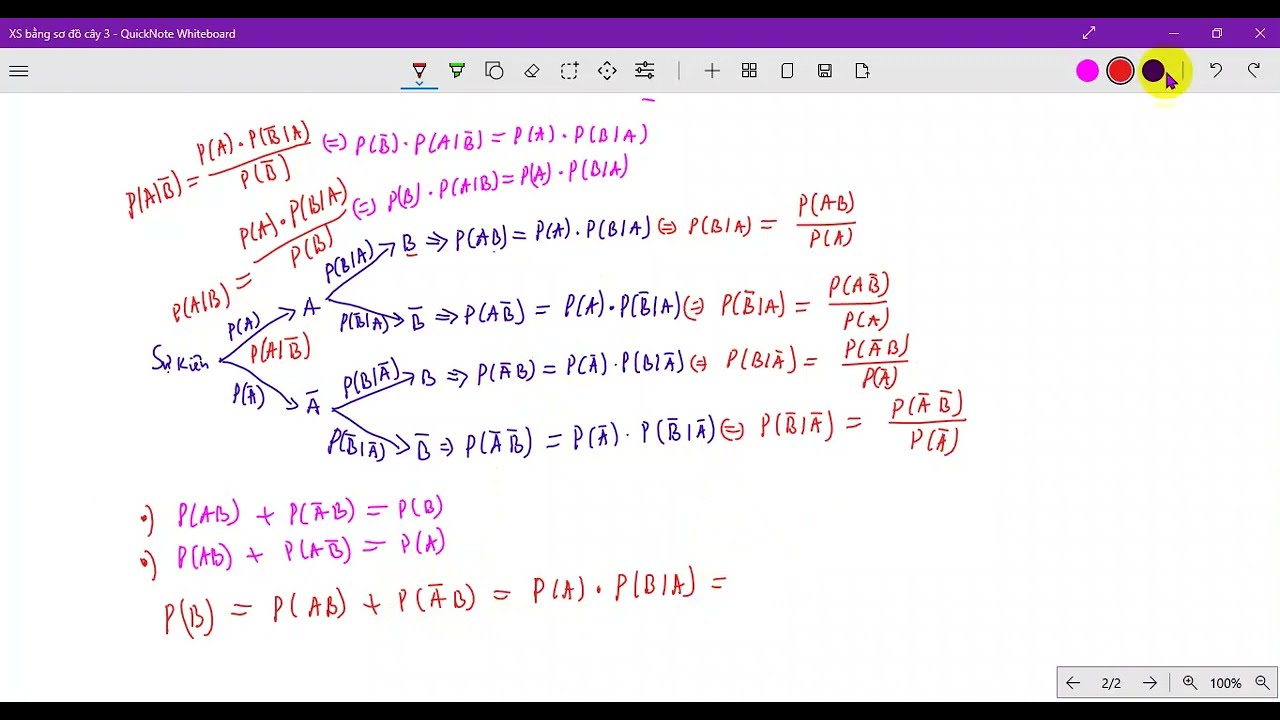 XS bằng sơ đồ cây 3 - QuickNote Whiteboard
P(A|B̅) = P(A) · P(B̅|A) / P(B̅) (=) P(B̅) · P(A|B̅) = P(A) · P(B|A)
P(A|B) = P(A) · P(B|A) / P(B) (=) P(B) · P(A|B) = P(A) · P(B|A)
P(B|A) B => P(AB) = P(A) . P(B|A) (=) P(B|A) = P(AB) / P(A)
A
P(A)
P(B̅|A) B̅ => P(AB̅) = P(A) · P(B̅|A) (=) P(B̅|A) = P(AB̅) / P(A)
Sự kiện
P(A|B̅)
P(A̅)
P(B|A̅) B => P(A̅B) = P(A̅) · P(B|A̅) (=) P(B|A̅) = P(A̅B) / P(A̅)
A̅
P(B̅|A̅) B̅ => P(A̅B̅) = P(A̅) · P(B̅|A̅) (=) P(B̅|A̅) = P(A̅B̅) / P(A̅)
•) P(AB) + P(A̅B) = P(B)
•) P(AB) + P(AB̅) = P(A)
P(B) = P(AB) + P(A̅B) = P(A) · P(B|A) =
2/2 100%